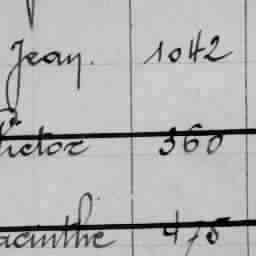 Jean. 1042
Victor 360
acinthe 475